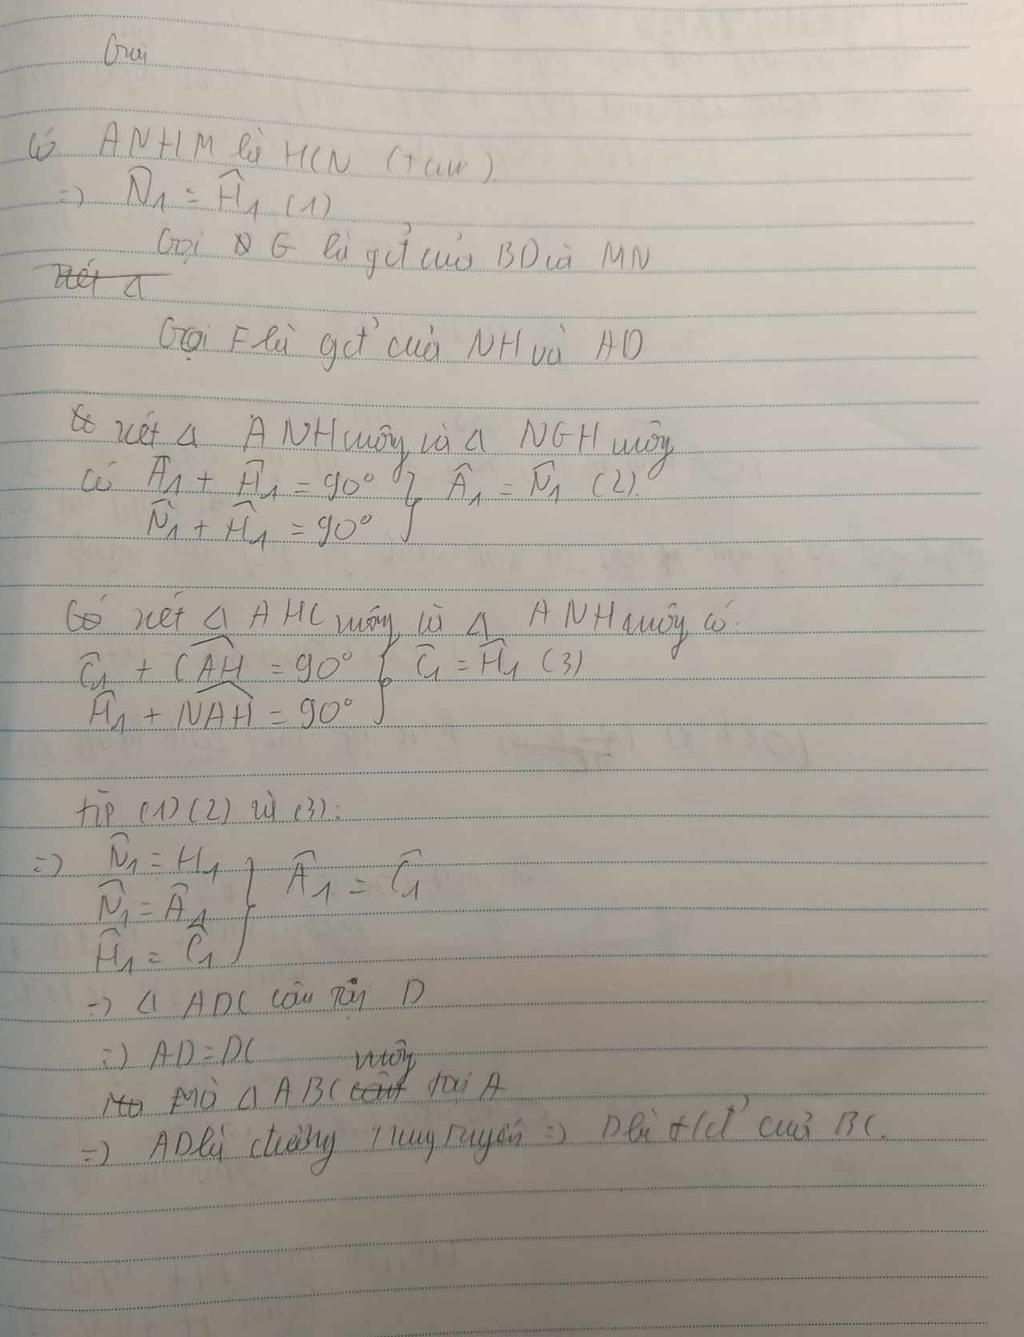 Giải
Có ANHM là HCN (+cm)
=> N̂1 = Ĥ1 (1)
Gọi G là gđ của BD và MN
Xét Δ
Gọi F là gđ của NH và AD
xét Δ ANH vuông và Δ NGH vuông
Có Â1 + Ĥ1 = 90° } Â1 = N̂1 (2)
N̂1 + Ĥ1 = 90°
Có xét Δ AHC vuông và Δ ANH vuông có:
Ĉ1 + CAH = 90° } Ĉ1 = Ĥ1 (3)
Ĥ1 + NAH = 90°
từ (1) (2) và (3):
=> N̂1 = H1 } Â1 = Ĉ1
N̂1 = Â1
Ĥ1 = Ĉ1
=> Δ ADC cân tại D
=> AD = DC
Mà Δ ABC vuông tại A
=> AD là đường trung tuyến => D là tđ của BC.